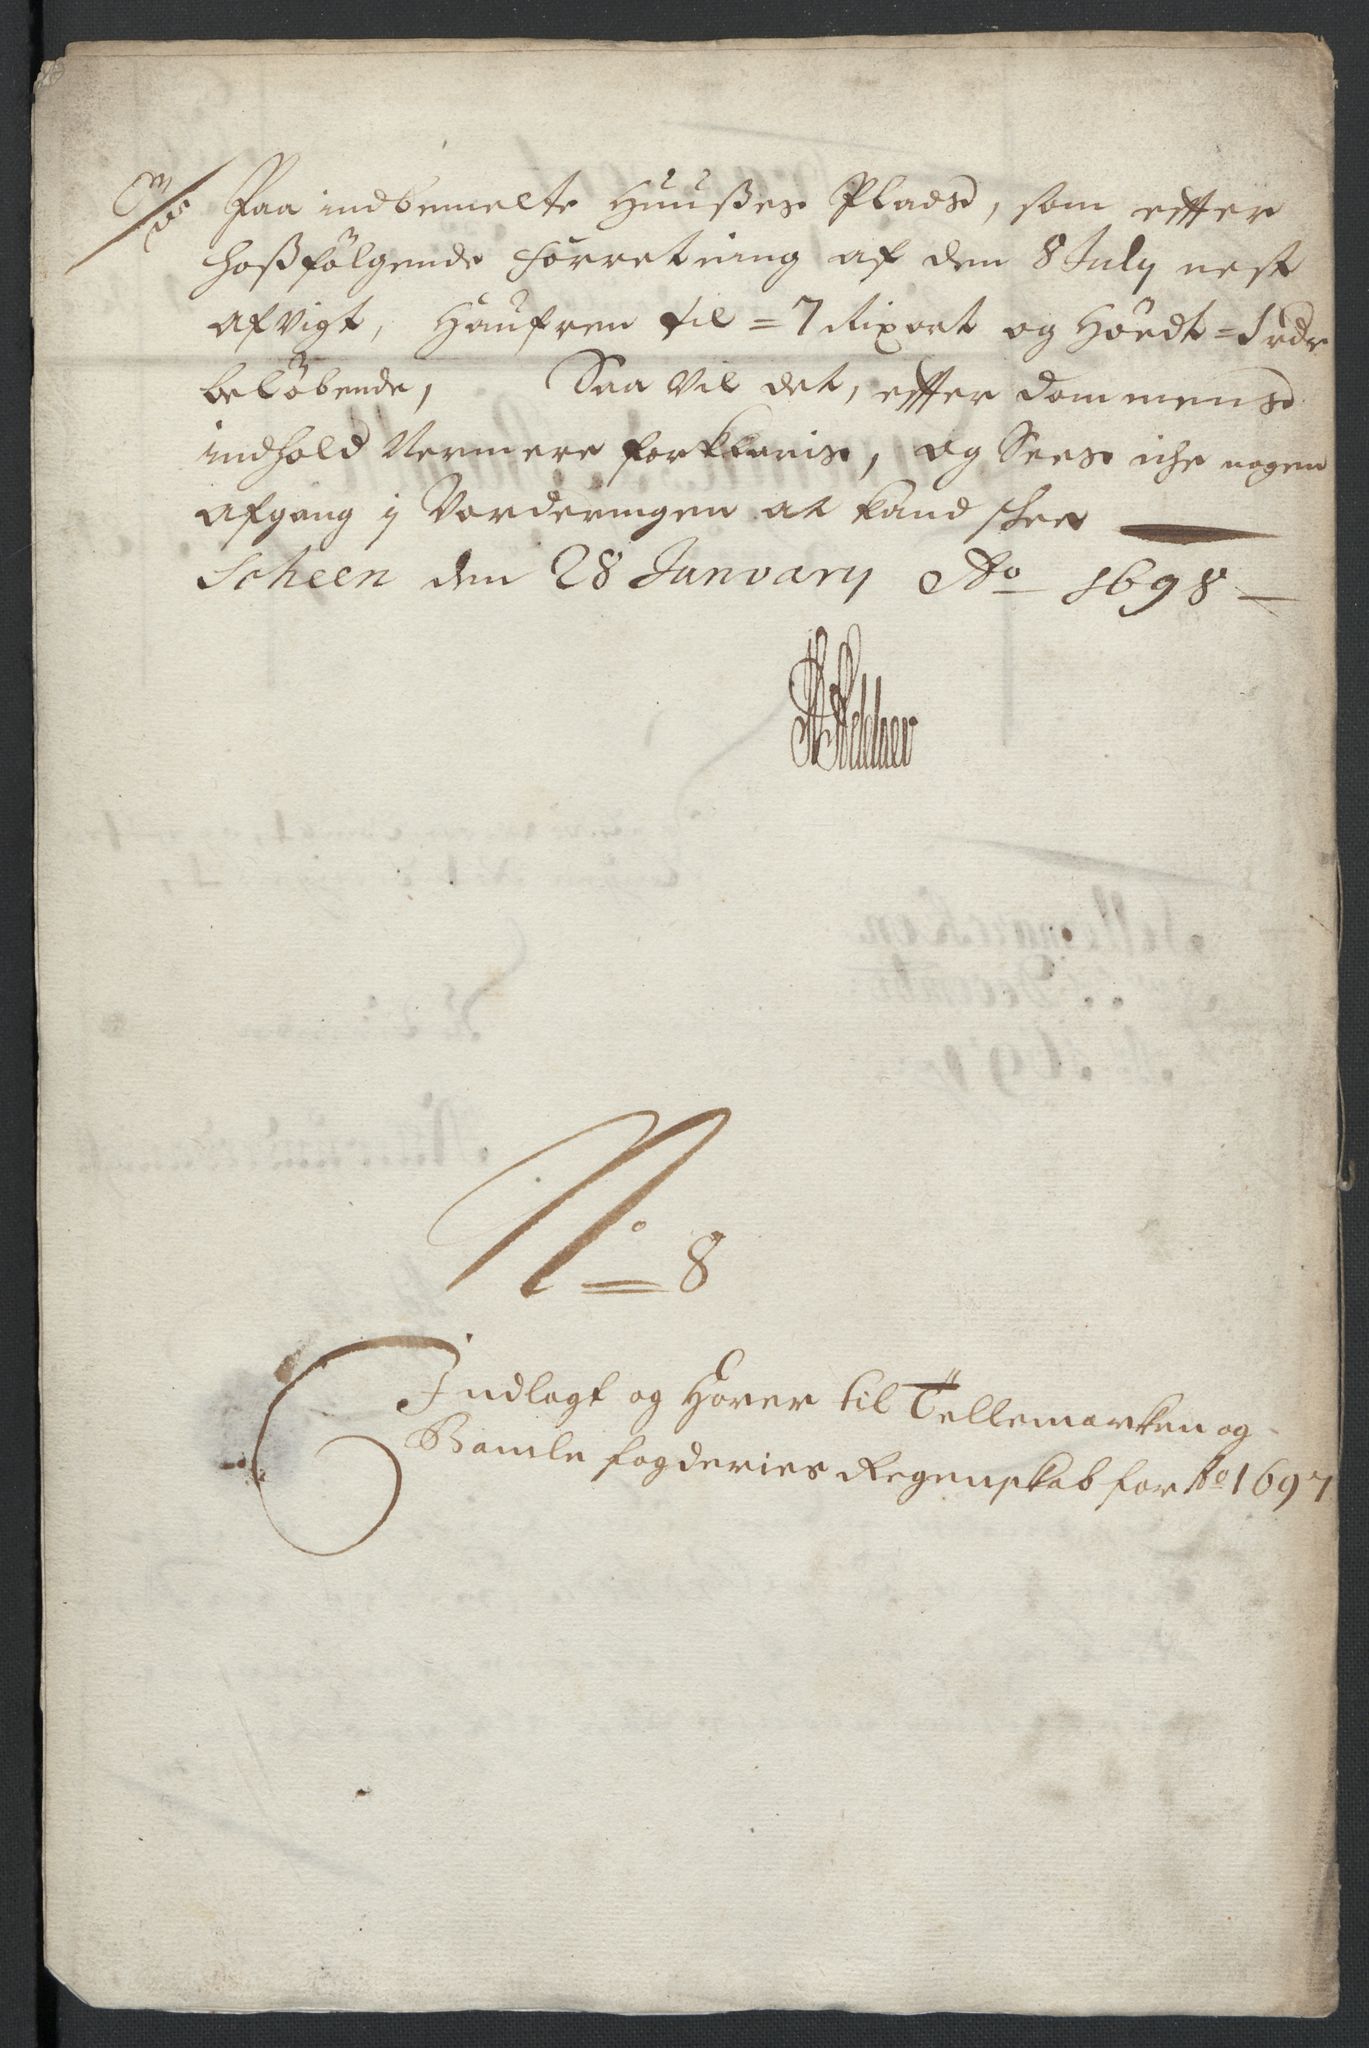 Paa indbemelte Huußes Plads, som effter
hoßfölgende forretning af den 8 July nest
afvigt, til = 7 Rixort og = 1 rdr
belöbende, Saa vil det, effter Dommens
indhold Nermere forklaris, og Sees iche nogen
afgang i Vorderingen at kand skee
Scheen den 28 January Ao 1698
No 8
Indlagt og Hörer til Tellemarken og
Bamle fogderies Regenskab for Ao 1697